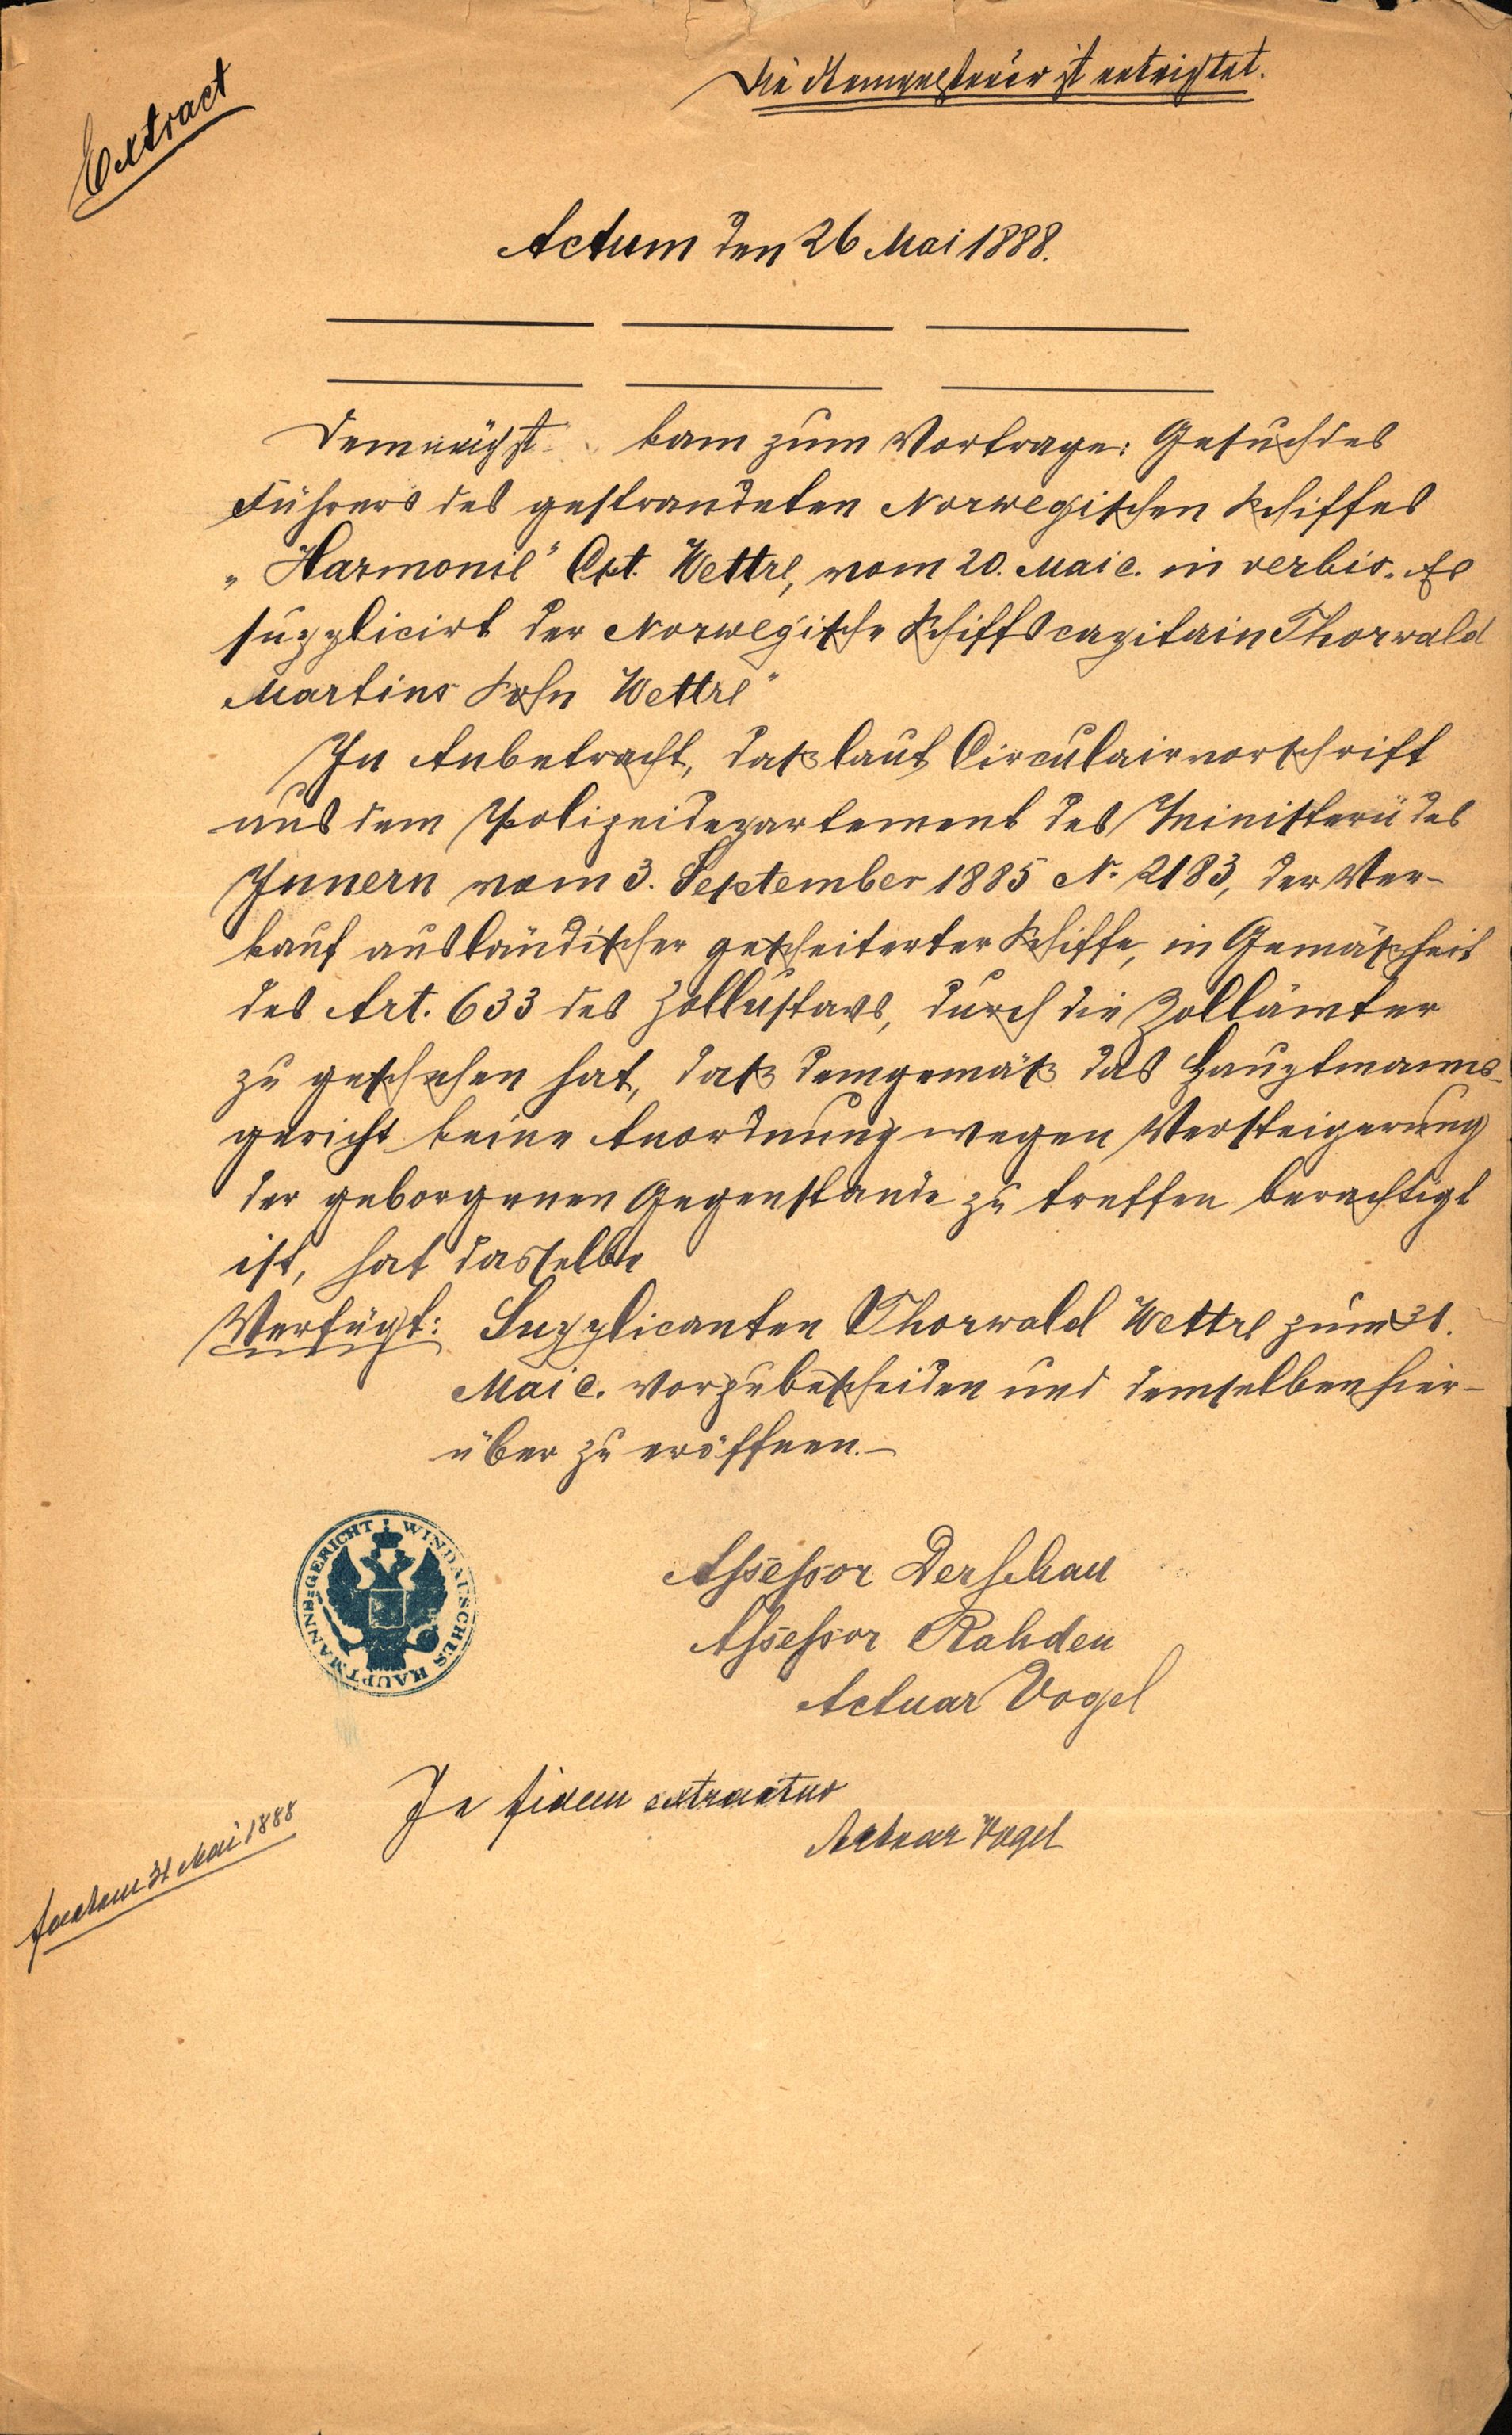 Extract
Die Stempelsteuer ist entrichtet.
Actum den 26 Mai 1888.
Demnächst kam zum Vortrage: Gesuch des
Führers des gestrandeten Norwegischen Schiffes
„Harmonie" Cpt. Wettre, vom 20. Mai c. in verbis. Es
supplicirt der Norwegische Schiffscapitain Thorwald
Martins Sohn Wettre"
In Anbetracht, daß laut Circulairvorschrift
aus dem Polizeidepartement des Ministerii des
Innern vom 3. September 1885 N. 2183, der Ver-
kauf ausländischer gescheiterter Schiffe, in Gemäßheit
des Art. 633 des Zollustavs, durch die Zollämter
zu geschehen hat, daß demgemäß das Hauptmanns-
gericht keine Anordnung wegen Versteigerung
der geborgenen Gegenstande zu treffen berechtigt
ist, hat dasselbe
Verfügt: Supplicanten Thorwald Wettre zum 31.
Mai c. vorzubescheiden und demselben hier-
über zu eröffnen.—
WINDAUSCHES HAUPTMANNS=GERICHT
Assessor Derschau
Assessor Rahden
Actuar Vogel
In fidem extractus
Actuar Vogel
31 Mai 1888